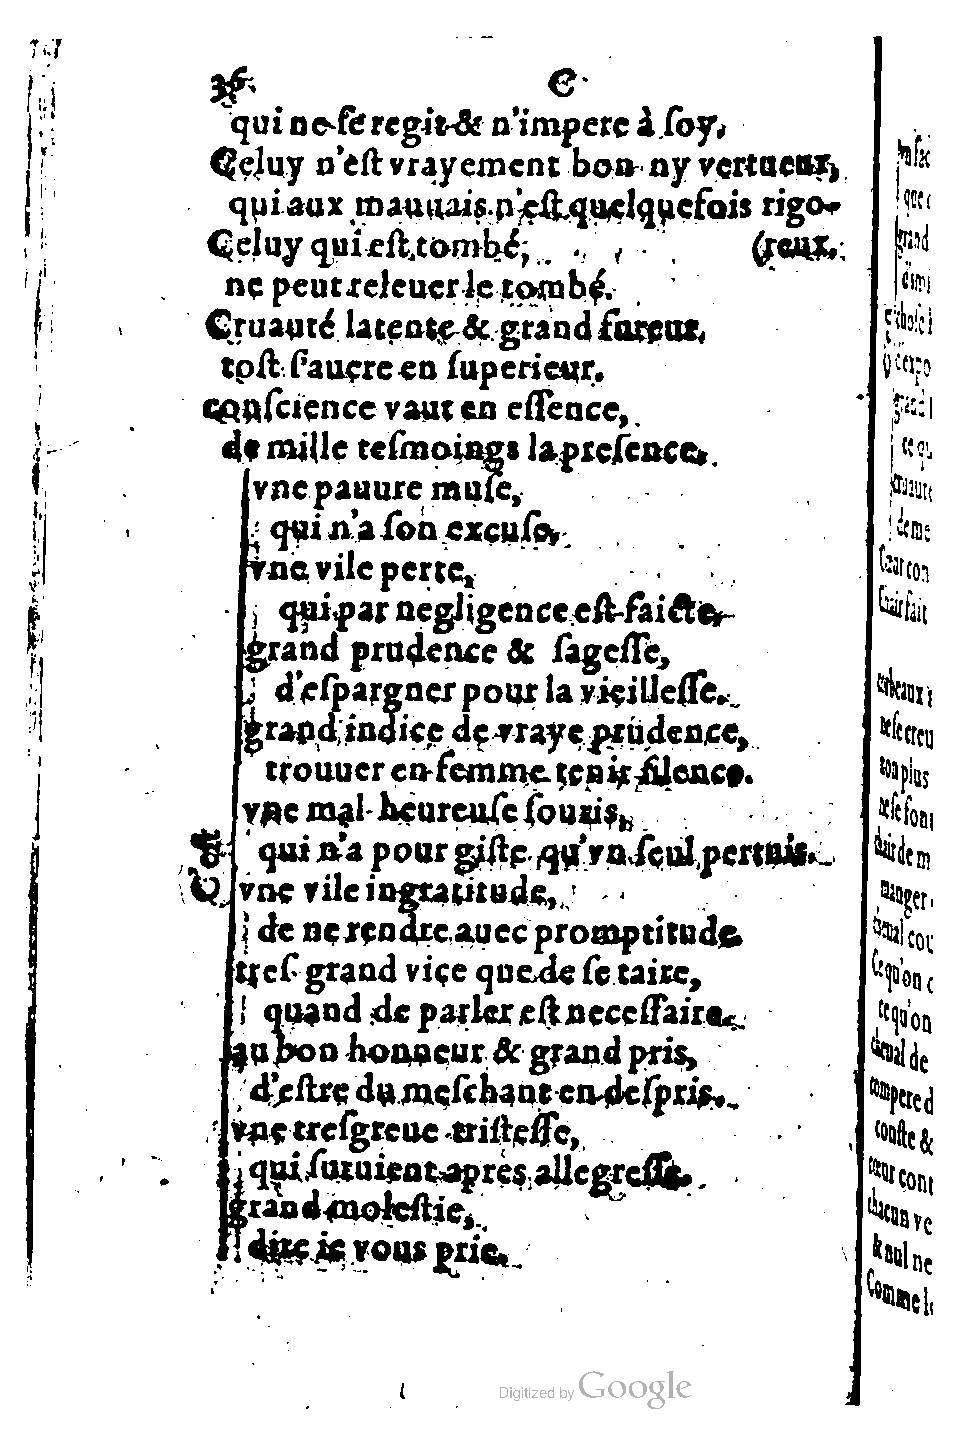 36. C
qui ne ſe regit & n'impere à ſoy,
Celuy n'eſt vrayement bon ny vertueux,
qui aux mauuais n'eſt quelquefois rigo-
Celuy qui eſt tombé, (reux.
ne peut releuer le tombé.
Cruauté latente & grand fureur,
toſt ſ'aucre en ſuperieur.
conſcience vaut en eſſence,
de mille teſmoings la preſence.
vne pauure muſe,
qui n'a ſon excuſe,
vne vile perte,
qui par negligence eſt faicte,
grand prudence & ſageſſe,
d'eſpargner pour la vieilleſſe.
grand indice de vraye prudence,
trouuer en femme tenir ſilence.
vne mal-heureuſe ſouris,
C'eſt qui n'a pour giſte qu'vn ſeul pertuis.
vne vile ingratitude,
de ne rendre auec promptitude.
treſ grand vice que de ſe taire,
quand de parler eſt neceſſaire.
au bon honneur & grand pris,
d'eſtre du meſchant en deſpris.
vne treſgreue triſteſſe,
qui ſuruient apres allegreſſe.
grand moleſtie,
dire ie vous prie.
Digitized by Google